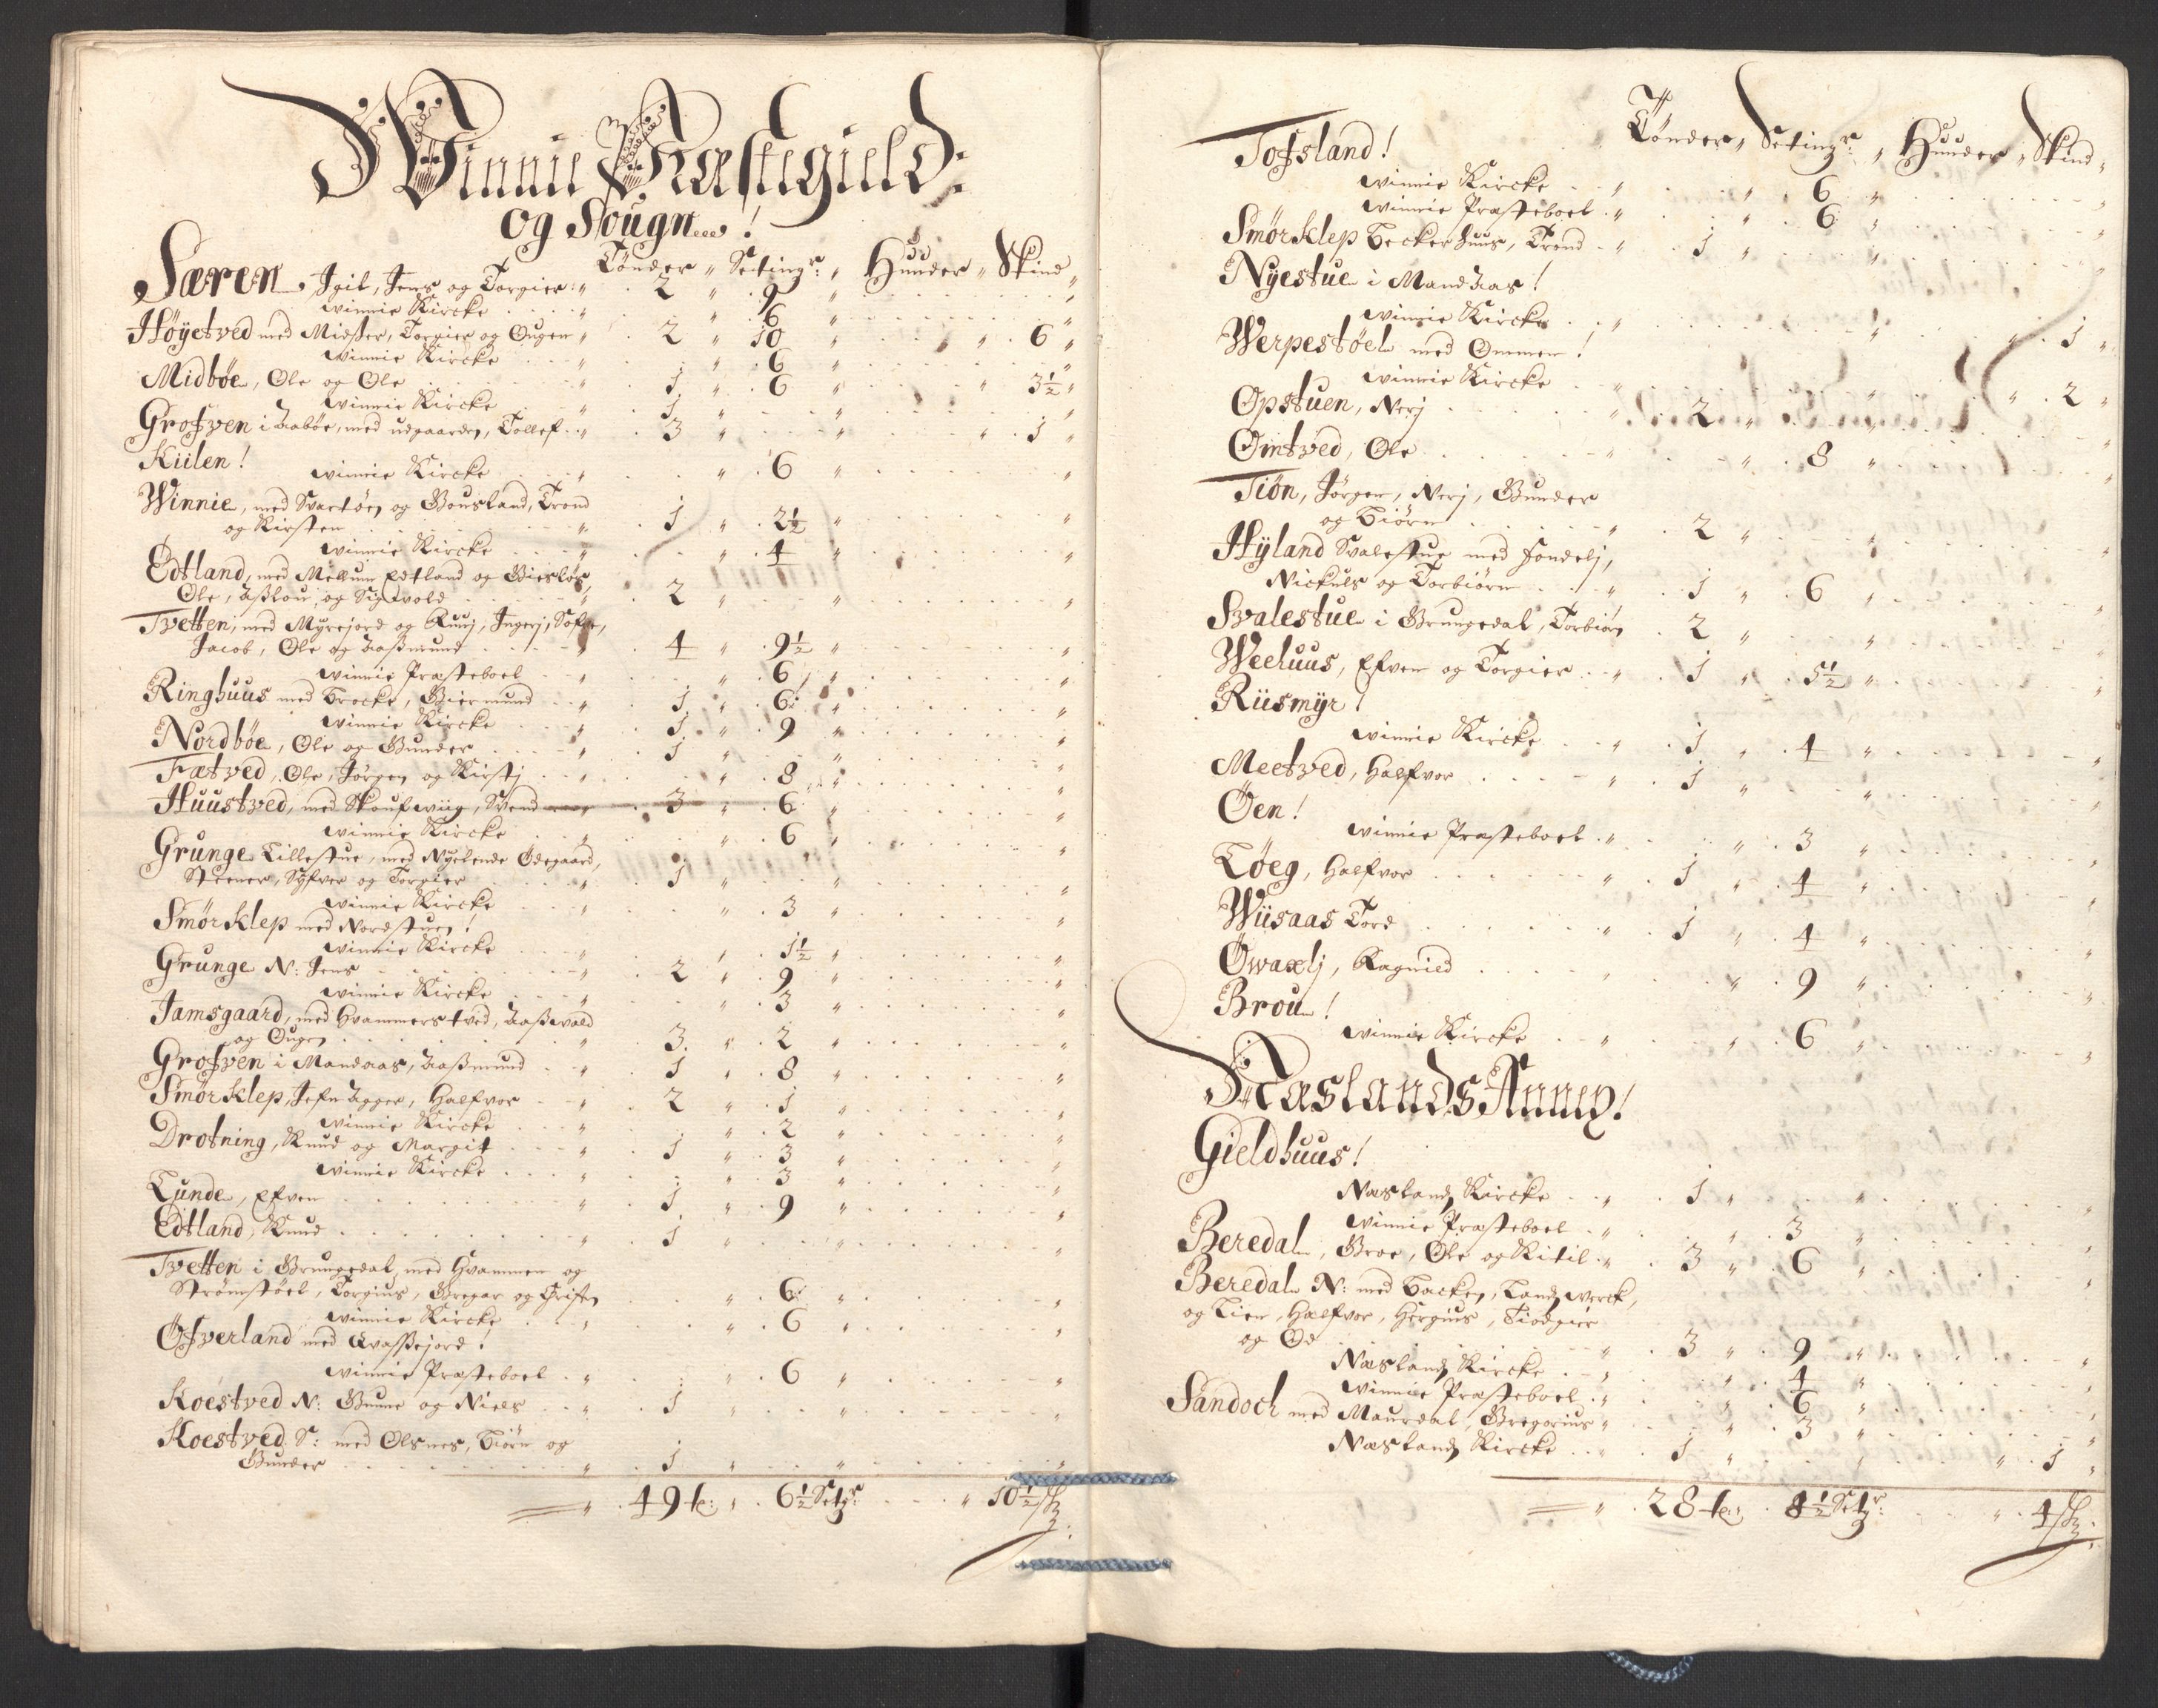 Winnie Præstegield:
og Sougn!
Tønder „ Setingr: „ Huuder „ Skind
Særen, Igil, Jens og Torgier „ 2 „ 9 „
winnie Kircke „ 6 „
Høyetved med Midsser, Torgier og Ougen „ 2 „ 10 „ „ 6 „
winnie Kircke „ 6 „
Midbøe, Ole og Ole „ 1 „ 6 „ „ 3½ „
winnie Kircke 1 „
Grofven i Aabøe, med udgaarden, Tollef „ 3 „ „ 1 „
Kiilen!
winnie Kircke „ 6 „
Winnie, med Svartøen og Gousland, Trond
og Kirsten „ 1 „ 2½ „
winnie Kircke „ 4 „
Edtland, med Mellum Edtland og
Ole, Aslou, og Sigvold 2 „
Tvetten, med Myrejord og Ruuj, Ingerj,
Jacob, Ole og Aassmund 4 „ 9½ „
winnie Præsteboel „ 6 „
Ringhuus med Brocke, Giermund „ 1 „ 6 „
winnie Kircke 1 „ 9 „
Nordbøe, Ole og Gunder 1 „
Fætved, Ole, Jørgen og Kirstj „ 8 „
Huustved, med Skoufwiig, Svend 3 „ 6 „
winnie Kircke „ 6 „
Grunge Lillestue, med Nyelende Ødegaard,
Steener, Syfver og Torgier 1 „
winnie Kircke „ 3 „
Smørklep med Nordstuen!
winnie Kircke „ 1½ „
Grunge N: Jens 2 „ 9 „
winnie Kircke „ 3 „
Jamsgaard, med Hvammerstved, Aassvald
og Ougen 3 „ 2 „
Grofven i Mandaas, Aassmund 1 „ 8 „
Smørklep, Halfvor 2 „ 1 „
winnie Kircke „ 2 „
Drotning, Knud og Margit 1 „ 3 „
winnie Kircke „ 3 „
Lunde, Efven 1 „ 9 „
Edtland, Knud 1 „
Tvetten i Grungedal, med Hvammen og
Strømstøel, Torgius, Gregar og „ 6 „
winnie Kircke „ 6 „
Øfverland med Qvassejord!
winnie Præsteboel „ 6 „
Koestved N: Gunne og Niels 1 „
Koestved S: med Olsnes, Biørn og
Gunder 1 „
49 t: „ 6½ Setgr: „ 10½ sk:
Tønder „ Setingr: „ Huuder „ Skind „
Tofsland!
winnie Kircke „ 6 „
winnie Præsteboel „ 6 „
Smørklep Beckerhuus, Trond 1 „
Nyestue i Mandaas!
winnie Kircke „ „ 1 „
Werpestøel med Ommen!
winnie Kircke „ „ 2 „
Opstuen, Nerj 2 „
Omtved, Ole „ 8 „
Tiøn, Jørgen, Nerj, Gunder
og Biørn 2 „
Hyland Svalestue med Fondelj,
Nickuls og Torbiørn 1 „ 6 „
Svalestue i Grungedal, Torbiørn 2 „
Weeluus, Efven og Torgier 1 „ 5½ „
Riismyr!
winnie Kircke 1 „ 4 „
Meetved, Halfvor 1 „
Øen!
winnie Præsteboel „ 3 „
Løeg, Halfvor 1 „ 4 „
Wiisaas Tord 1 „ 4 „
Øwaelj, Ragnild „ 9 „
Brou!
winnie Kircke „ 6 „
Raslands Annex!
Gieldhuus!
Næslands Kircke 1 „
winnie Præsteboel „ 3 „
Beredal, Groe, Ole og Kitil 3 „ 6 „
Beredal N: med Backen, Landswerck,
og Lien, Halfvor, Hergius, Tiodgier
og Od 3 „ 9 „
Næslands Kircke „ 4 „
winnie Præsteboel „ 6 „
Sandoch med Maurdal, Gregorius „ 3 „
Næslands Kircke 1 „ „ 1 „
28 t: 8½ Setgr: „ 4 sk: